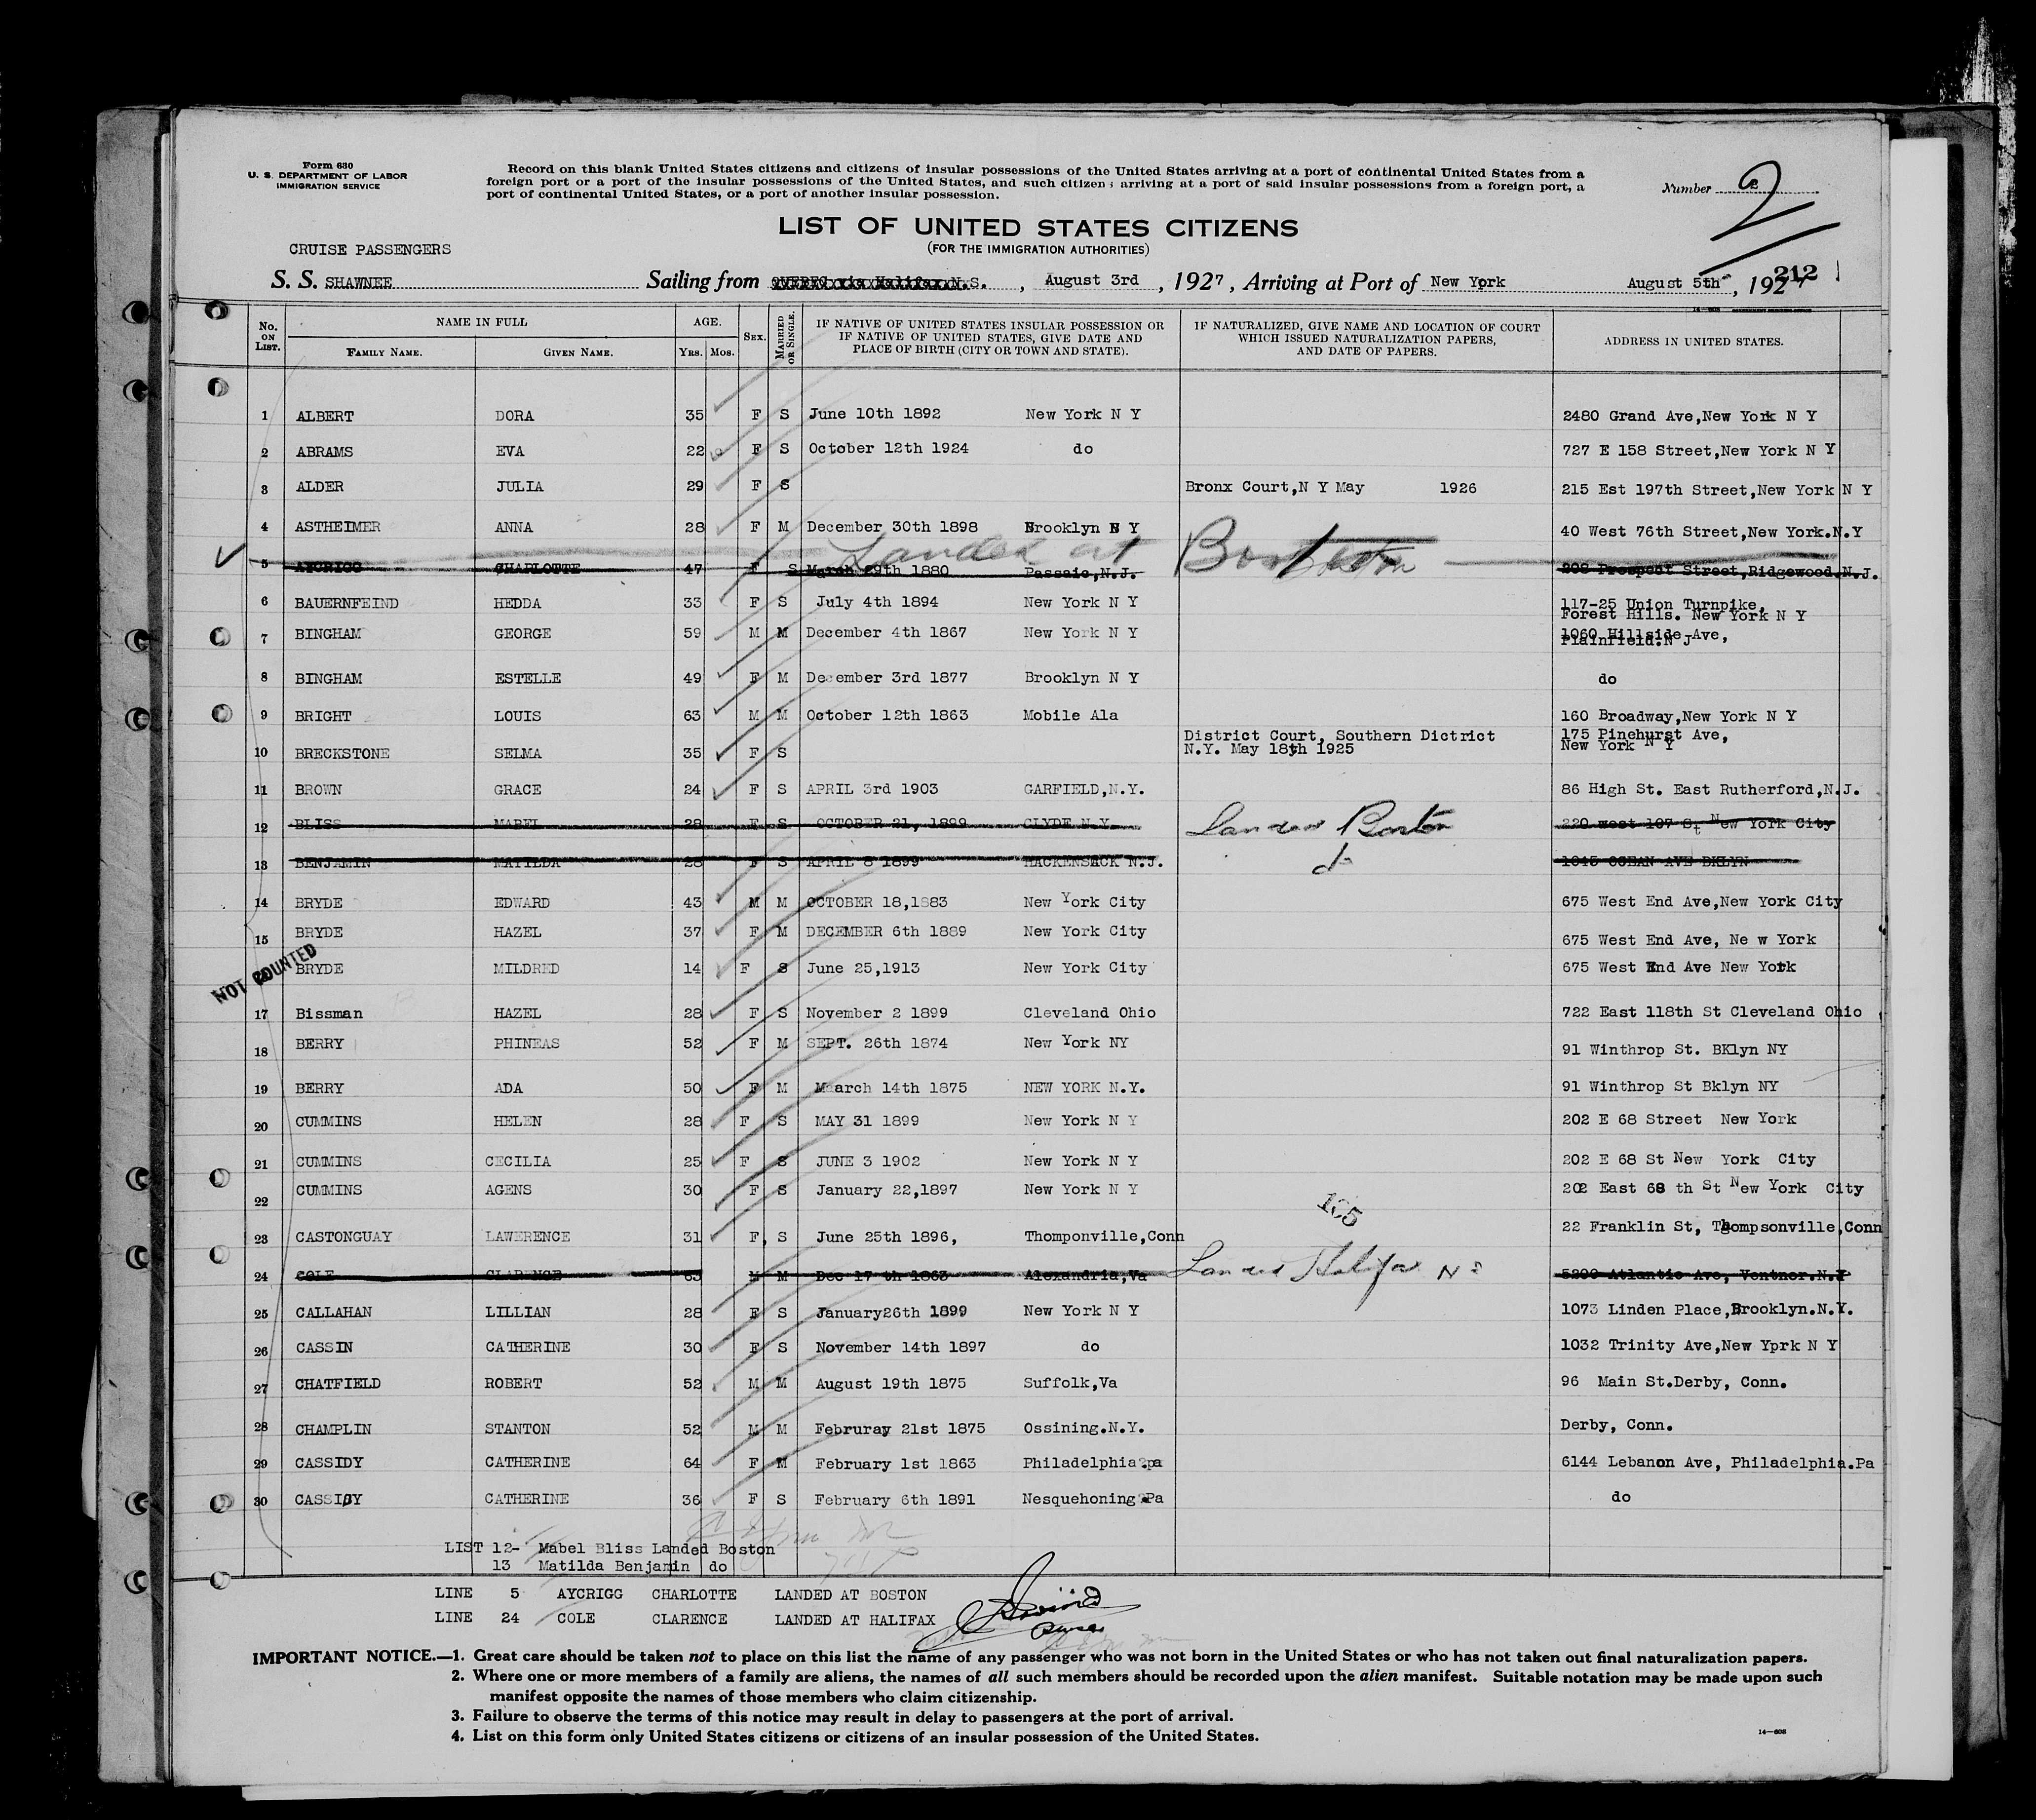 Form 630
U. S. DEPARTMENT OF LABOR
IMMIGRATION SERVICE
Record on this blank United States citizens and citizens of insular possessions of the United States arriving at a port of continental United States from a
foreign port or a port of the insular possessions of the United States, and such citizens arriving at a port of said insular possessions from a foreign port, a
port of continental United States, or a port of another insular possession.
Number 2
LIST OF UNITED STATES CITIZENS
(FOR THE IMMIGRATION AUTHORITIES)
CRUISE PASSENGERS
S. S. SHAWNEE Sailing from QUEBEC via Halifax N.S. , August 3rd , 1927 , Arriving at Port of New York August 5th , 1927
212
No. ON LIST. NAME IN FULL AGE. SEX. MARRIED OR SINGLE. IF NATIVE OF UNITED STATES INSULAR POSSESSION OR IF NATIVE OF UNITED STATES, GIVE DATE AND PLACE OF BIRTH (CITY OR TOWN AND STATE). IF NATURALIZED, GIVE NAME AND LOCATION OF COURT WHICH ISSUED NATURALIZATION PAPERS, AND DATE OF PAPERS. ADDRESS IN UNITED STATES.
FAMILY NAME. GIVEN NAME. YRS. MOS.
1 ALBERT DORA 35 F S June 10th 1892 New York N Y 2480 Grand Ave,New York N Y
2 ABRAMS EVA 22 F S October 12th 1924 do 727 E 158 Street,New York N Y
3 ALDER JULIA 29 F S Bronx Court,N Y May 1926 215 Est 197th Street,New York N Y
4 ASTHEIMER ANNA 28 F M December 30th 1898 Brooklyn N Y 40 West 76th Street,New York.N.Y
Landed at Boston
5 AYCRIGG CHARLOTTE 47 F S March 29th 1880 Passaic,N.J. 208 Prospect Street,Ridgewood.N.J.
6 BAUERNFEIND HEDDA 33 F S July 4th 1894 New York N Y 117-25 Union Turnpike, Forest Hills. New York N Y
7 BINGHAM GEORGE 59 M M December 4th 1867 New York N Y 1060 Hillside Ave, Plainfield.N J
8 BINGHAM ESTELLE 49 F M December 3rd 1877 Brooklyn N Y do
9 BRIGHT LOUIS 63 M M October 12th 1863 Mobile Ala 160 Broadway,New York N Y
10 BRECKSTONE SELMA 35 F S District Court, Southern Dictrict N.Y. May 18th 1925 175 Pinehurst Ave, New York N Y
11 BROWN GRACE 24 F S APRIL 3rd 1903 GARFIELD,N.Y. 86 High St. East Rutherford,N.J.
12 BLISS MABEL 28 F S OCTOBER 21, 1899 CLYDE N.Y. Landed Boston 220 west 107 St New York City
13 BENJAMIN MATILDA 28 F S APRIL 8 1899 HACKENSACK N.J. do 1645 OCEAN AVE BKLYN
14 BRYDE EDWARD 43 M M OCTOBER 18,1883 New York City 675 West End Ave,New York City
15 BRYDE HAZEL 37 F M DECEMBER 6th 1889 New York City 675 West End Ave, Ne w York
NOT COUNTED
BRYDE MILDRED 14 F S June 25,1913 New York City 675 West End Ave New York
17 Bissman HAZEL 28 F S November 2 1899 Cleveland Ohio 722 East 118th St Cleveland Ohio
18 BERRY PHINEAS 52 F M SEPT. 26th 1874 New York NY 91 Winthrop St. BKlyn NY
19 BERRY ADA 50 F M Maarch 14th 1875 NEW YORK N.Y. 91 Winthrop St Bklyn NY
20 CUMMINS HELEN 28 F S MAY 31 1899 New York N Y 202 E 68 Street New York
21 CUMMINS CECILIA 25 F S JUNE 3 1902 New York N Y 202 E 68 St New York City
22 CUMMINS AGENS 30 F S January 22,1897 New York N Y 202 East 68 th St New York City
23 CASTONGUAY LAWERENCE 31 F, S June 25th 1896, Thomponville,Conn 22 Franklin St, Thompsonville,Conn
24 COLE CLARENCE 63 M M Dec 17 th 1863 Alexandria,Va Landed Halifax N S 5200 Atlantic Ave, Ventnor.N.Y
25 CALLAHAN LILLIAN 28 F S January26th 1899 New York N Y 1073 Linden Place,Brooklyn.N.Y.
26 CASSIN CATHERINE 30 F S November 14th 1897 do 1032 Trinity Ave,New Yprk N Y
27 CHATFIELD ROBERT 52 M M August 19th 1875 Suffolk,Va 96 Main St.Derby, Conn.
28 CHAMPLIN STANTON 52 M M Februray 21st 1875 Ossining.N.Y. Derby, Conn.
29 CASSIDY CATHERINE 64 F M February 1st 1863 Philadelphia pa 6144 Lebanon Ave, Philadelphia.Pa
30 CASSIDY CATHERINE 36 F S February 6th 1891 Nesquehoning Pa do
LIST 12- Mabel Bliss Landed Boston
13 Matilda Benjamin do
LINE 5 AYCRIGG CHARLOTTE LANDED AT BOSTON
LINE 24 COLE CLARENCE LANDED AT HALIFAX
Purser
IMPORTANT NOTICE.—1. Great care should be taken not to place on this list the name of any passenger who was not born in the United States or who has not taken out final naturalization papers.
2. Where one or more members of a family are aliens, the names of all such members should be recorded upon the alien manifest. Suitable notation may be made upon such
manifest opposite the names of those members who claim citizenship.
3. Failure to observe the terms of this notice may result in delay to passengers at the port of arrival.
4. List on this form only United States citizens or citizens of an insular possession of the United States.
14—608